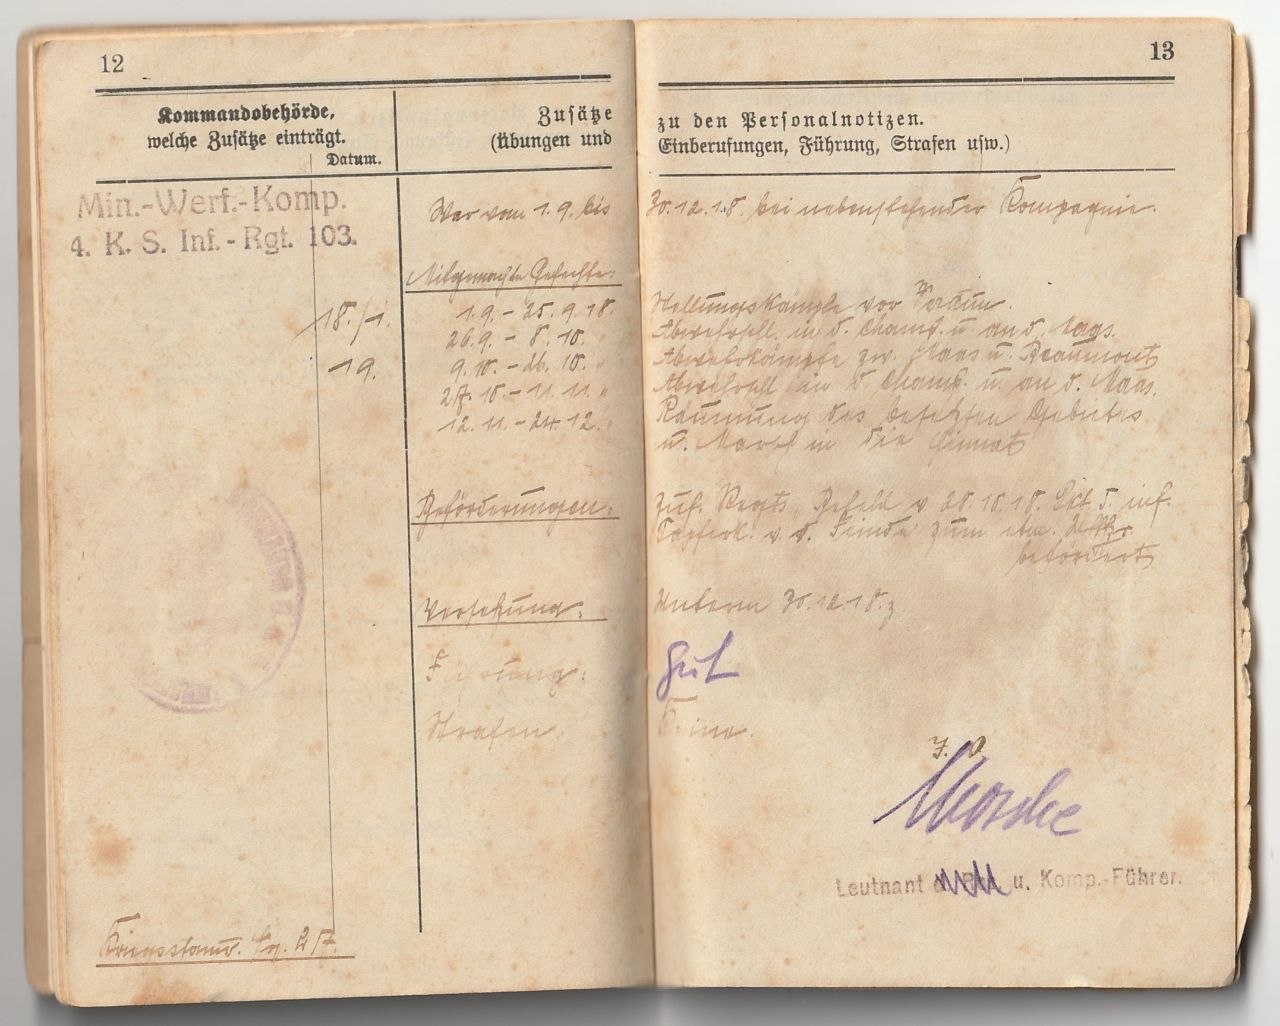 12
Kommandobehörde,
welche Zusätze einträgt.
Datum.
Zusätze
(Übungen und
Min.-Werf.-Komp.
4. K. S. Inf.-Rgt. 103.
18./1.
19.
War vom 1.9. bis
Mitgemachte Gefechte:
1.9. - 25.9.18.
26.9. - 8.10. "
9.10. - 26.10. "
27.10. - 11.11. "
12.11. - 24.12. "
Beförderungen:
Versetzung:
Führung:
Strafen:
Kriegsstamr. Nr. 217.
13
zu den Personalnotizen.
Einberufungen, Führung, Strafen usw.)
30.12.18. bei nebenstehender Kompagnie.
Stellungskämpfe vor Verdun.
Abwehrschl. in d. Champ. u. an d. Maas.
Abwehrkämpfe zw. Maas u. Beaumont
Abwehrschl. in d. Champ. u. an d. Maas.
Räumung des besetzten Gebietes
u. Marsch in die Heimat
Zuf. Regts. Befehl v. 28.10.18. inf.
Tapferk. v. d. Feinde zum
befördert
Unterm 30.12.18.
gut
Keine.
J. V.
Leutnant u. Komp.-Führer.